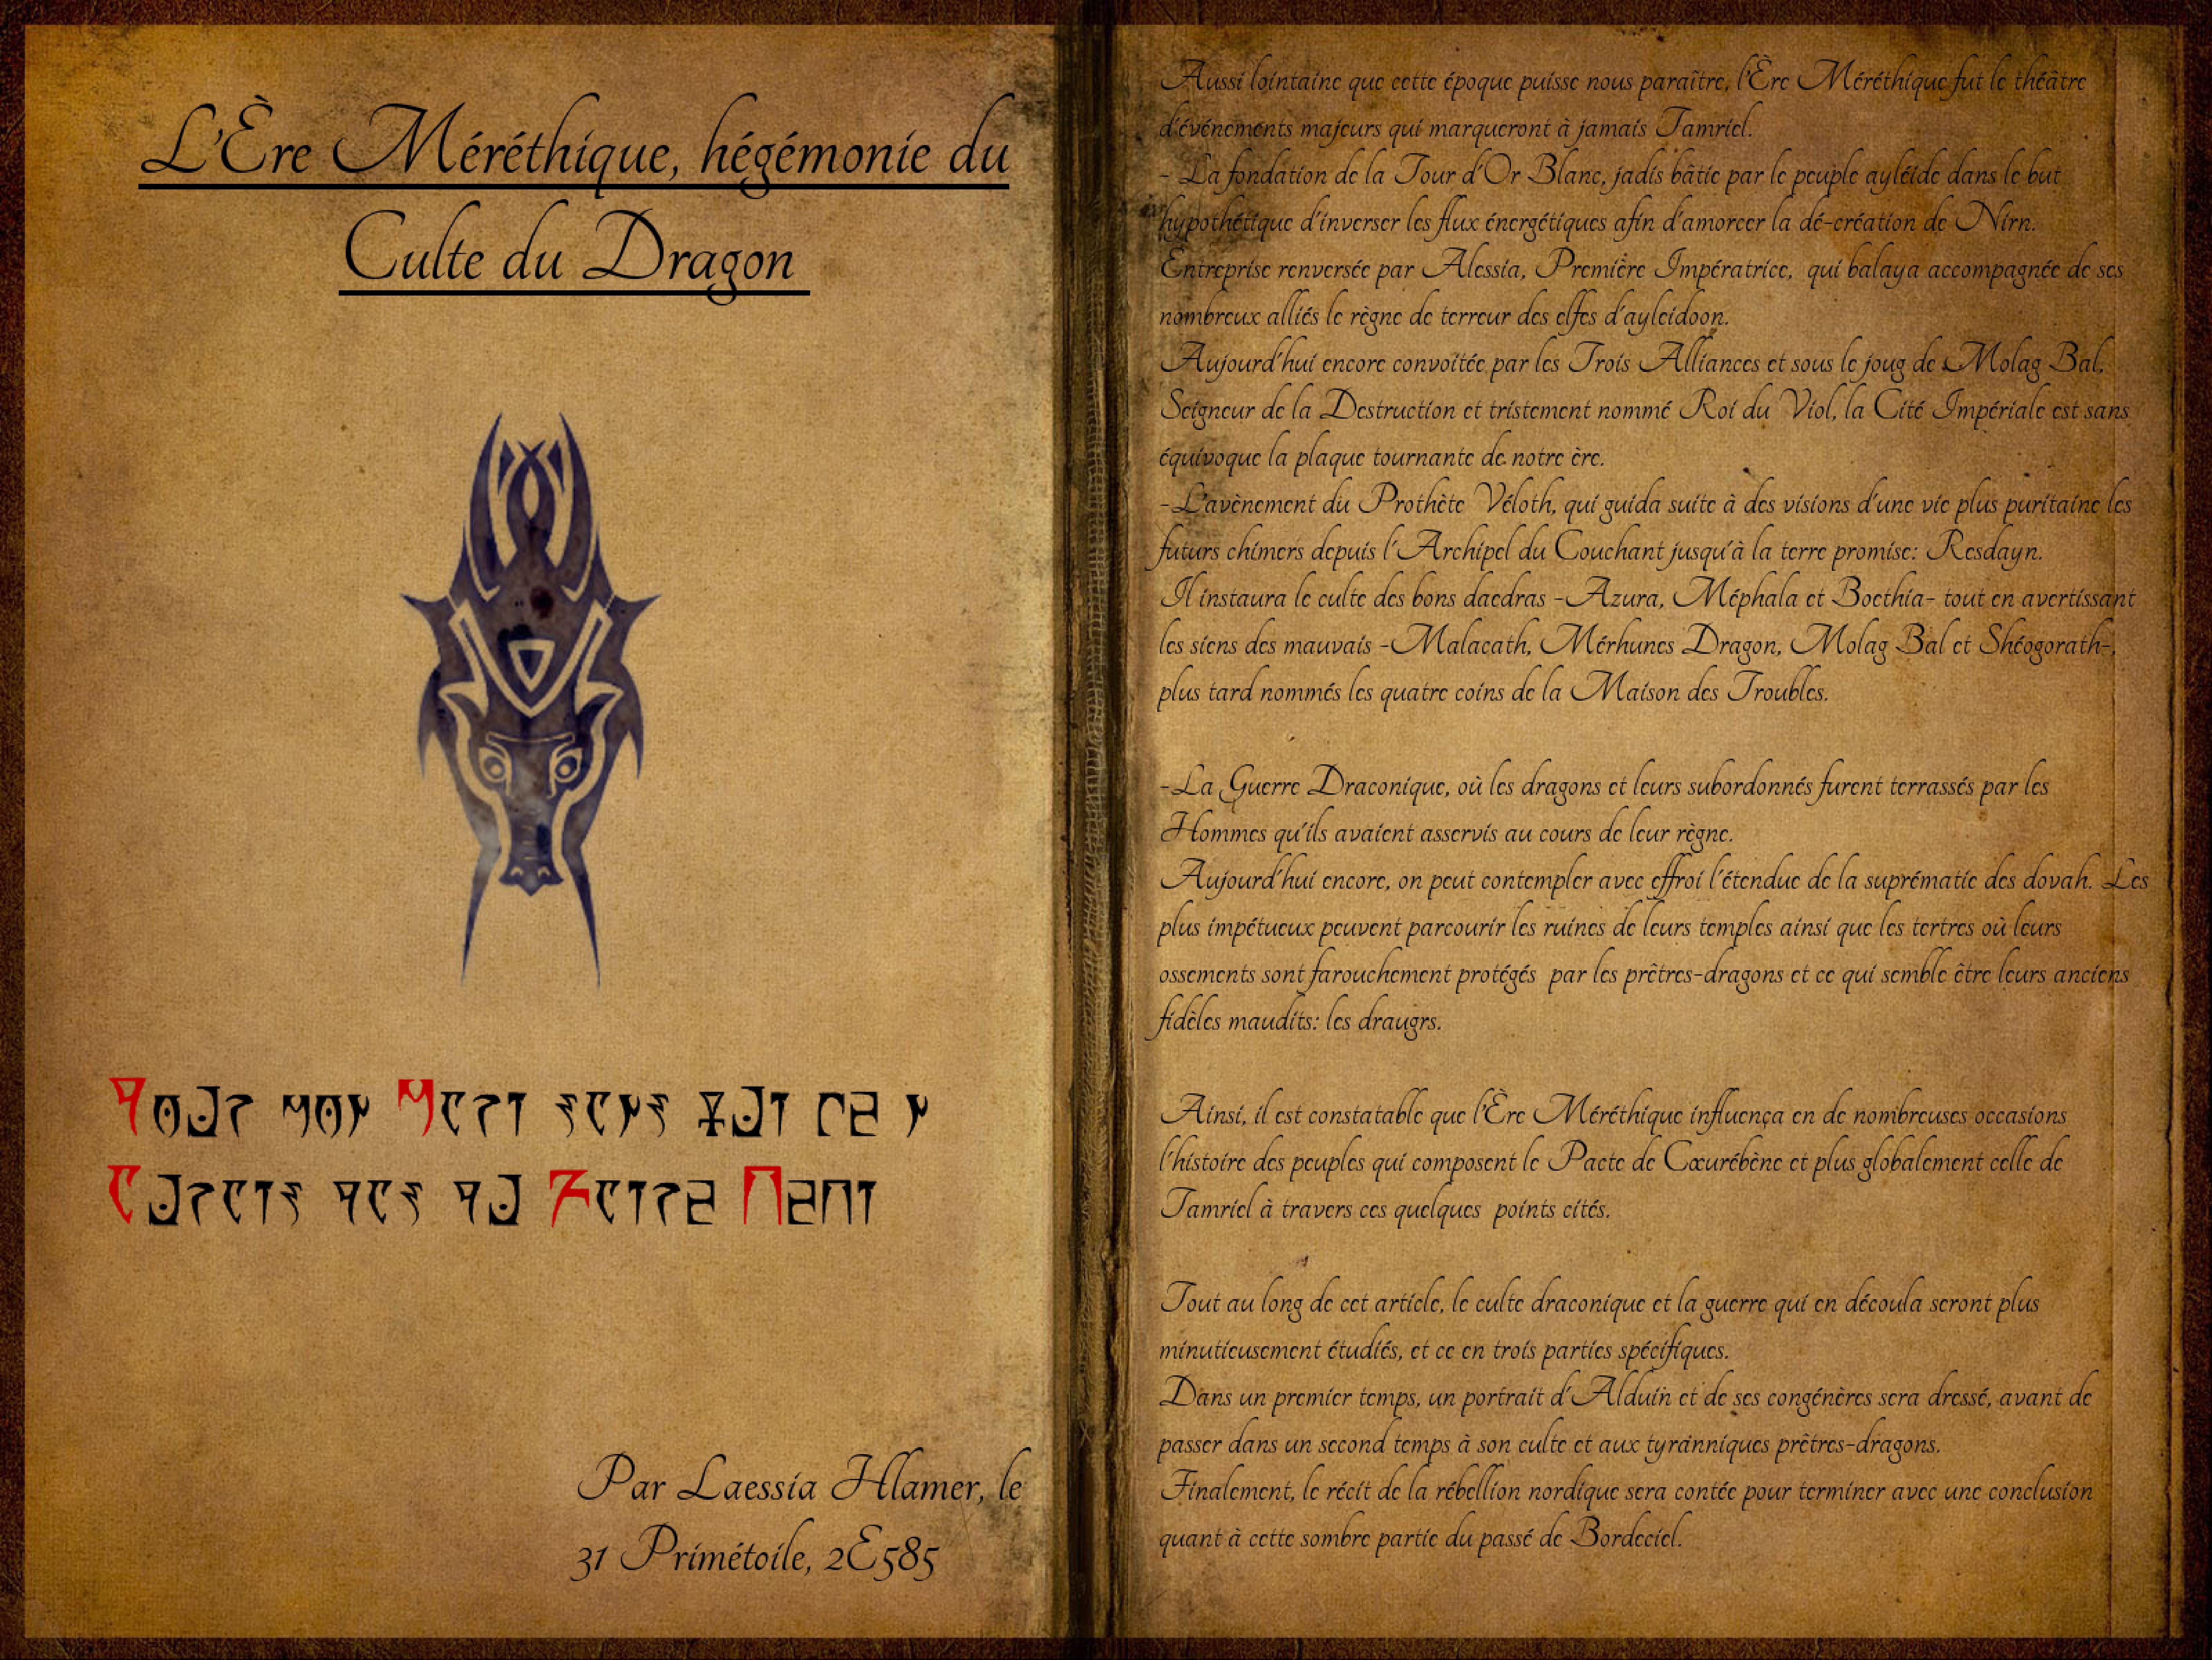 L'Ère Méréthique, hégémonie du
Culte du Dragon
Par Laessia Hlamer, le
31 Primétoile, 2E585
Aussi lointaine que cette époque puisse nous paraître, l'Ère Méréthique fut le théâtre
d'événements majeurs qui marqueront à jamais Tamriel.
- La fondation de la Tour d'Or Blanc, jadis bâtie par le peuple ayléide dans le but
hypothétique d'inverser les flux énergétiques afin d'amorcer la dé-création de Nirn.
Entreprise renversée par Alessia, Première Impératrice, qui balaya accompagnée de ses
nombreux alliés le règne de terreur des elfes d'ayleidoon.
Aujourd'hui encore convoitée par les Trois Alliances et sous le joug de Molag Bal,
Seigneur de la Destruction et tristement nommé Roi du Viol, la Cité Impériale est sans
équivoque la plaque tournante de notre ère.
-L'avènement du Prothète Véloth, qui guida suite à des visions d'une vie plus puritaine les
futurs chimers depuis l'Archipel du Couchant jusqu'à la terre promise: Resdayn.
Il instaura le culte des bons daedras -Azura, Méphala et Boethia- tout en avertissant
les siens des mauvais -Malacath, Mérhunes Dragon, Molag Bal et Shéogorath-,
plus tard nommés les quatre coins de la Maison des Troubles.
-La Guerre Draconique, où les dragons et leurs subordonnés furent terrassés par les
Hommes qu'ils avaient asservis au cours de leur règne.
Aujourd'hui encore, on peut contempler avec effroi l'étendue de la suprématie des dovah. Les
plus impétueux peuvent parcourir les ruines de leurs temples ainsi que les tertres où leurs
ossements sont farouchement protégés par les prêtres-dragons et ce qui semble être leurs anciens
fidèles maudits: les draugrs.
Ainsi, il est constatable que l'Ère Méréthique influença en de nombreuses occasions
l'histoire des peuples qui composent le Pacte de Cœurébène et plus globalement celle de
Tamriel à travers ces quelques points cités.
Tout au long de cet article, le culte draconique et la guerre qui en découla seront plus
minutieusement étudiés, et ce en trois parties spécifiques.
Dans un premier temps, un portrait d'Alduin et de ses congénères sera dressé, avant de
passer dans un second temps à son culte et aux tyranniques prêtres-dragons.
Finalement, le récit de la rébellion nordique sera contée pour terminer avec une conclusion
quant à cette sombre partie du passé de Bordeciel.